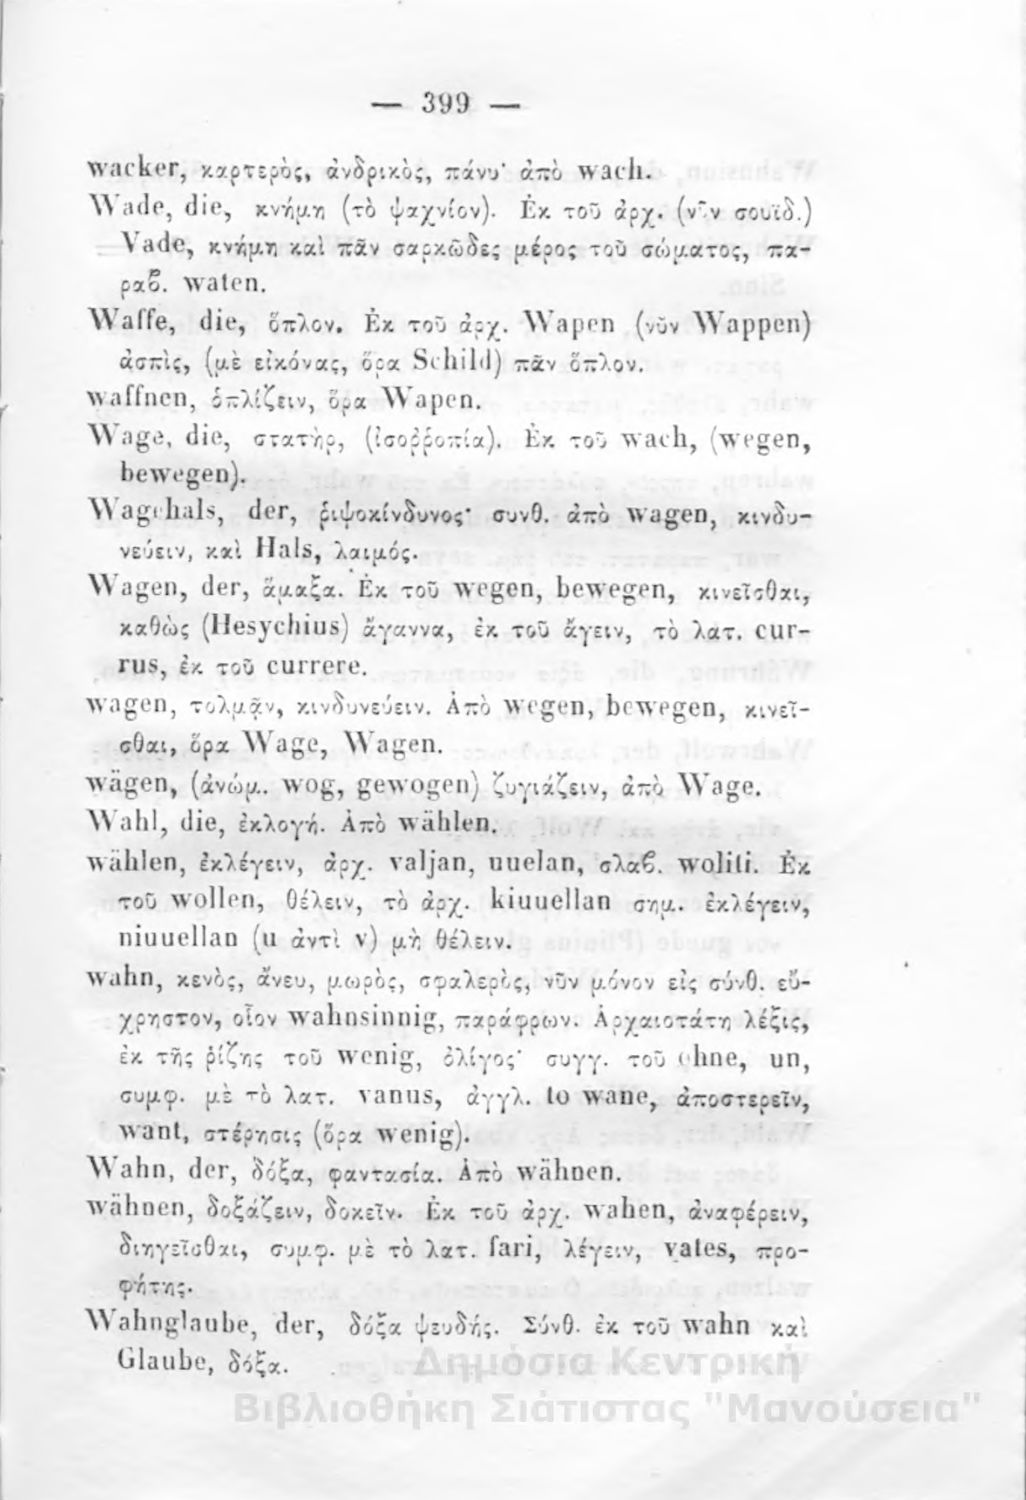 — 399 —
wacker, καρτερὸς, ἀνδρικὸς, πάνυ· ἀπὸ wach.
Wade, die, κνήμη (τὸ ψαχνίον). Ἐκ τοῦ ἀρχ. (νῦν σουϊδ.)
Vade, κνήμη καὶ πᾶν σαρκῶδες μέρος τοῦ σώματος, πα-
ραβ. waten.
Waffe, die, ὅπλον. Ἐκ τοῦ ἀρχ. Wapen (νῦν Wappen)
ἀσπὶς, (μὲ εἰκόνας, ὅρα Schild) πᾶν ὅπλον.
waffnen, ὁπλίζειν, ὅρα Wapen.
Wage, die, στατὴρ, (ἰσοῤῥοπία). Ἐκ τοῦ wach, (wegen,
bewegen).
Wagehals, der, ῥιψοκίνδυνος· συνθ. ἀπὸ wagen, κινδυ-
νεύειν, καὶ Hals, λαιμός.
Wagen, der, ἅμαξα. Ἐκ τοῦ wegen, bewegen, κινεῖσθαι,
καθὼς (Hesychius) ἄγαννα, ἐκ τοῦ ἄγειν, τὸ λατ. cur-
rus, ἐκ τοῦ currere.
wagen, τολμᾷν, κινδυνεύειν. Ἀπὸ wegen, bewegen, κινεῖ-
σθαι, ὅρα Wage, Wagen.
wägen, (ἀνώμ. wog, gewogen) ζυγιάζειν, ἀπὸ Wage.
Wahl, die, ἐκλογή. Ἀπὸ wählen.
wählen, ἐκλέγειν, ἀρχ. valjan, uuelan, σλαβ. woliti. Ἐκ
τοῦ wollen, θέλειν, τὸ ἀρχ. kiuuellan σημ. ἐκλέγειν,
niuuellan (u ἀντὶ v) μὴ θέλειν.
wahn, κενὸς, ἄνευ, μωρὸς, σφαλερὸς, νῦν μόνον εἰς σύνθ. εὔ-
χρηστον, οἷον wahnsinnig, παράφρων. Ἀρχαιοτάτη λέξις,
ἐκ τῆς ῥίζης τοῦ wenig, ὀλίγος· συγγ. τοῦ ohne, un,
συμφ. μὲ τὸ λατ. vanus, ἀγγλ. to wane, ἀποστερεῖν,
want, στέρησις (ὅρα wenig).
Wahn, der, δόξα, φαντασία. Ἀπὸ wähnen.
wähnen, δοξάζειν, δοκεῖν. Ἐκ τοῦ ἀρχ. wahen, ἀναφέρειν,
διηγεῖσθαι, συμφ. μὲ τὸ λατ. fari, λέγειν, vates, προ-
φήτης.
Wahnglaube, der, δόξα ψευδής. Σύνθ. ἐκ τοῦ wahn καὶ
Glaube, δόξα.
Δημόσια Κεντρική
Βιβλιοθήκη Σιάτιστας "Μανούσεια"